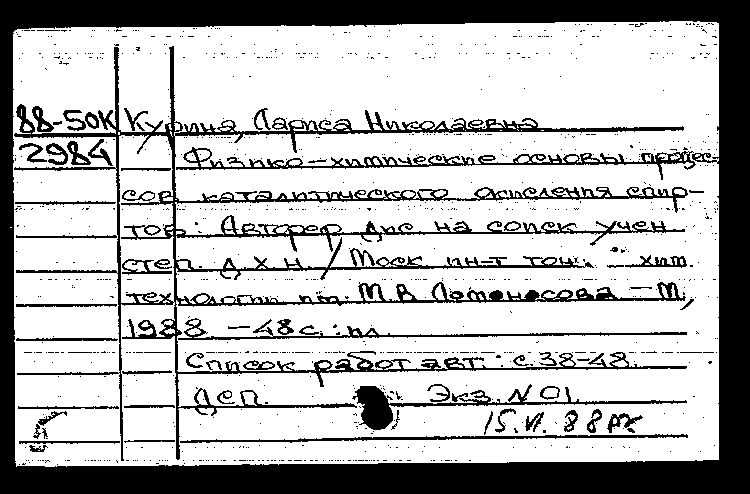 88-50К Курина, Лариса Николаевна
2984 Физико-химические основы процес-
сов каталитического окисления спир-
тов: Автореф дис. на соиск учен
степ. д.х.н. / Моск ин-т тон. хим.
технологии им. М.В Ломоносова - М.,
1988 - 48 с. : ил
Список работ авт.: с.38-48.
ДСП. Экз. N 01.
15.VI.88